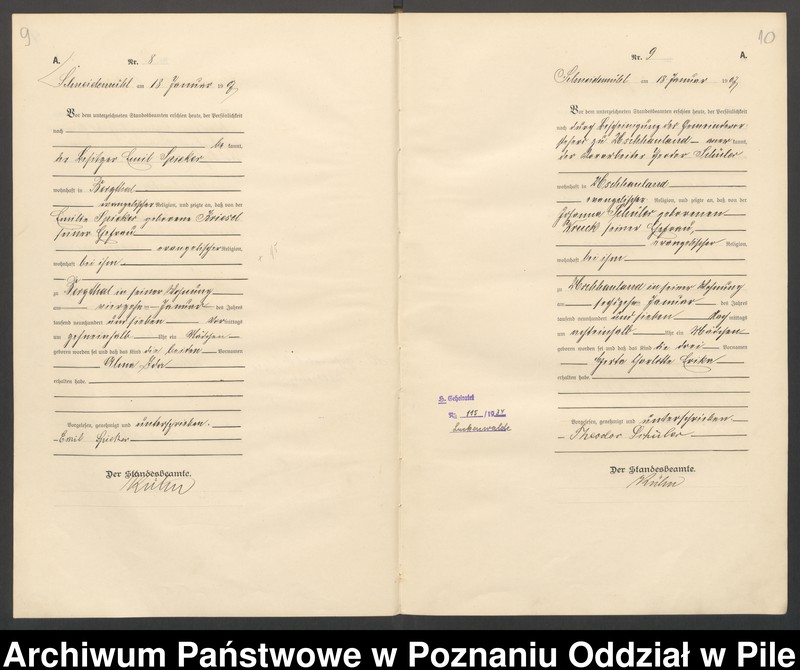 9
A.
Nr. 8
Schneidemühl am 18 Januar 1907
Vor dem unterzeichneten Standesbeamten erschien heute, der Persönlichkeit
nach
be kannt,
der Besitzer Emil Spicker
wohnhaft in Borgthal
evangelischer Religion, und zeigte an, daß von der
Emilie Spicker geborene
seiner Ehefrau
evangelischer Religion,
wohnhaft bei ihm
zu Borgthal in seiner Wohnung
am vierzehn Januar des Jahres
tausend neunhundert und sieben Vormittags
um zehneinhalb Uhr ein Mädchen
geboren worden sei und daß das Kind die beiden Vornamen
Alma Ida
erhalten habe.
Vorgelesen, genehmigt und unterschrieben.
Emil Spicker
Der Standesbeamte.
Kühn
10
Nr. 9
A.
Schneidemühl am 18 Januar 1907
Vor dem unterzeichneten Standesbeamten erschien heute, der Persönlichkeit
nach durch Bescheinigung des Gemeindevor-
stehers zu Uschhauland
der Vorarbeiter Theodor Schüler
wohnhaft in Uschhauland
evangelischer Religion, und zeigte an, daß von der
Johanna Schüler geborenen
Kruck seiner Ehefrau,
evangelischer Religion,
wohnhaft bei ihm
zu Uschhauland in seiner Wohnung
am sechzehn Januar des Jahres
tausend neunhundert und sieben Nachmittags
um achteinhalb Uhr ein Mädchen
geboren worden sei und daß das Kind die drei Vornamen
Herta Charlotte Erika
erhalten habe.
H. Geheiratet
Nr. 115/1934
Luckenwalde
Vorgelesen, genehmigt und unterschrieben
Theodor Schüler
Der Standesbeamte.
Kühn
Archiwum Państwowe w Poznaniu Oddział w Pile